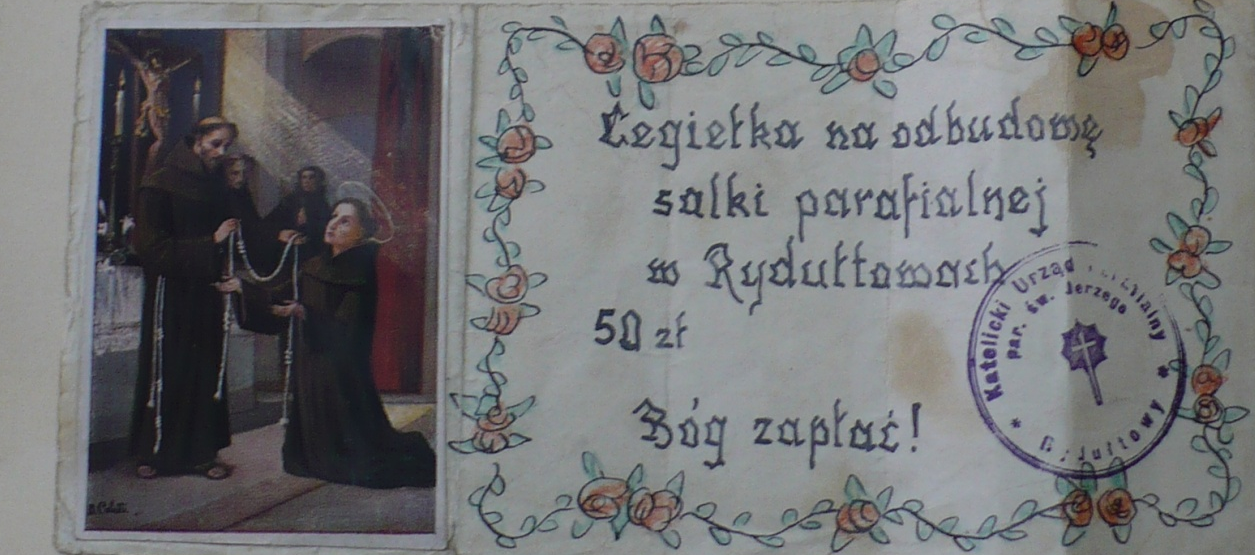 Cegiełka na odbudowę
salki parafialnej
w Rydułtowach
50 zł
Bóg zapłać!
Katolicki Urząd Parafialny
par. św. Jerzego
* Rydułtowy *